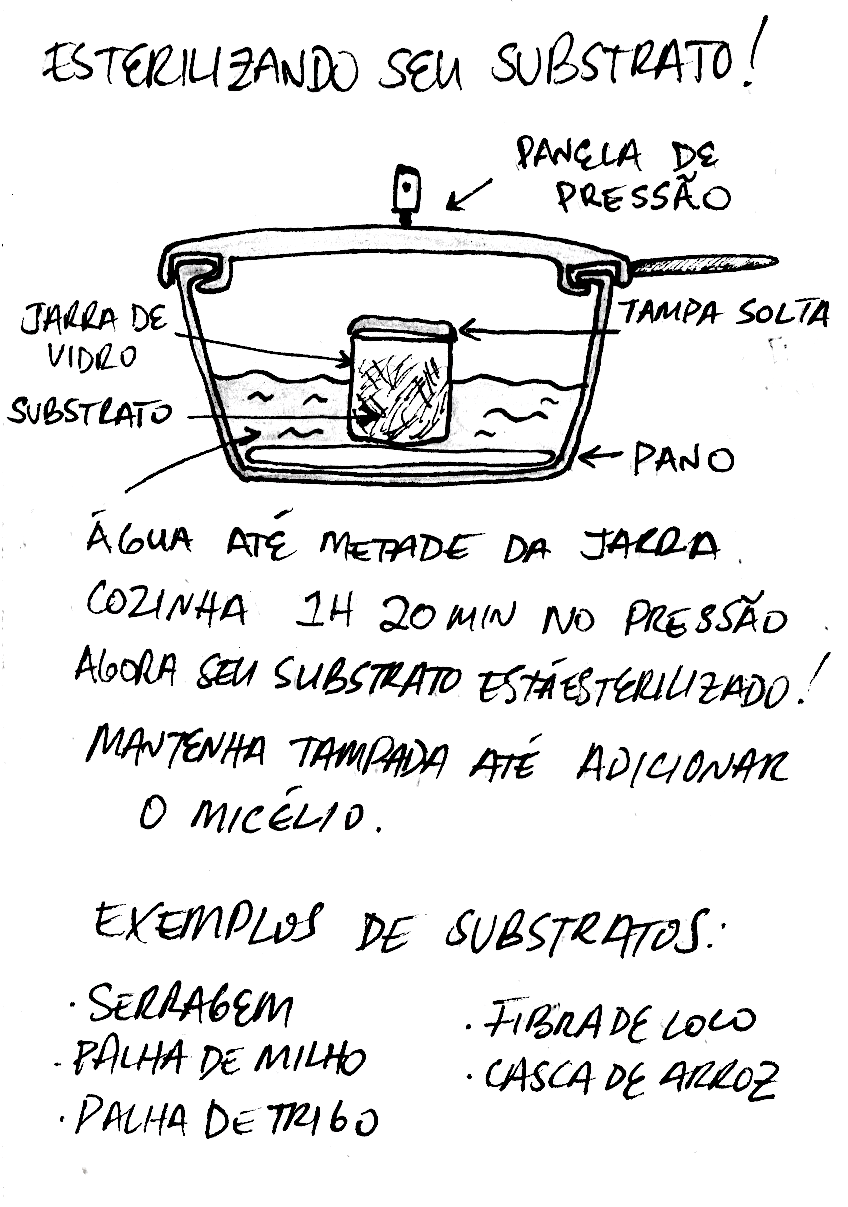 ESTERILIZANDO SEU SUBSTRATO!
PANELA DE
PRESSÃO
JARRA DE
VIDRO
TAMPA SOLTA
SUBSTRATO
PANO
ÁGUA ATÉ METADE DA JARRA
COZINHA 1H 20 MIN NO PRESSÃO
AGORA SEU SUBSTRATO ESTÁ ESTERILIZADO!
MANTENHA TAMPADA ATÉ ADICIONAR
O MICÉLIO.
EXEMPLOS DE SUBSTRATOS:
· SERRAGEM
· PALHA DE MILHO
· PALHA DE TRIGO
· FIBRA DE COCO
· CASCA DE ARROZ